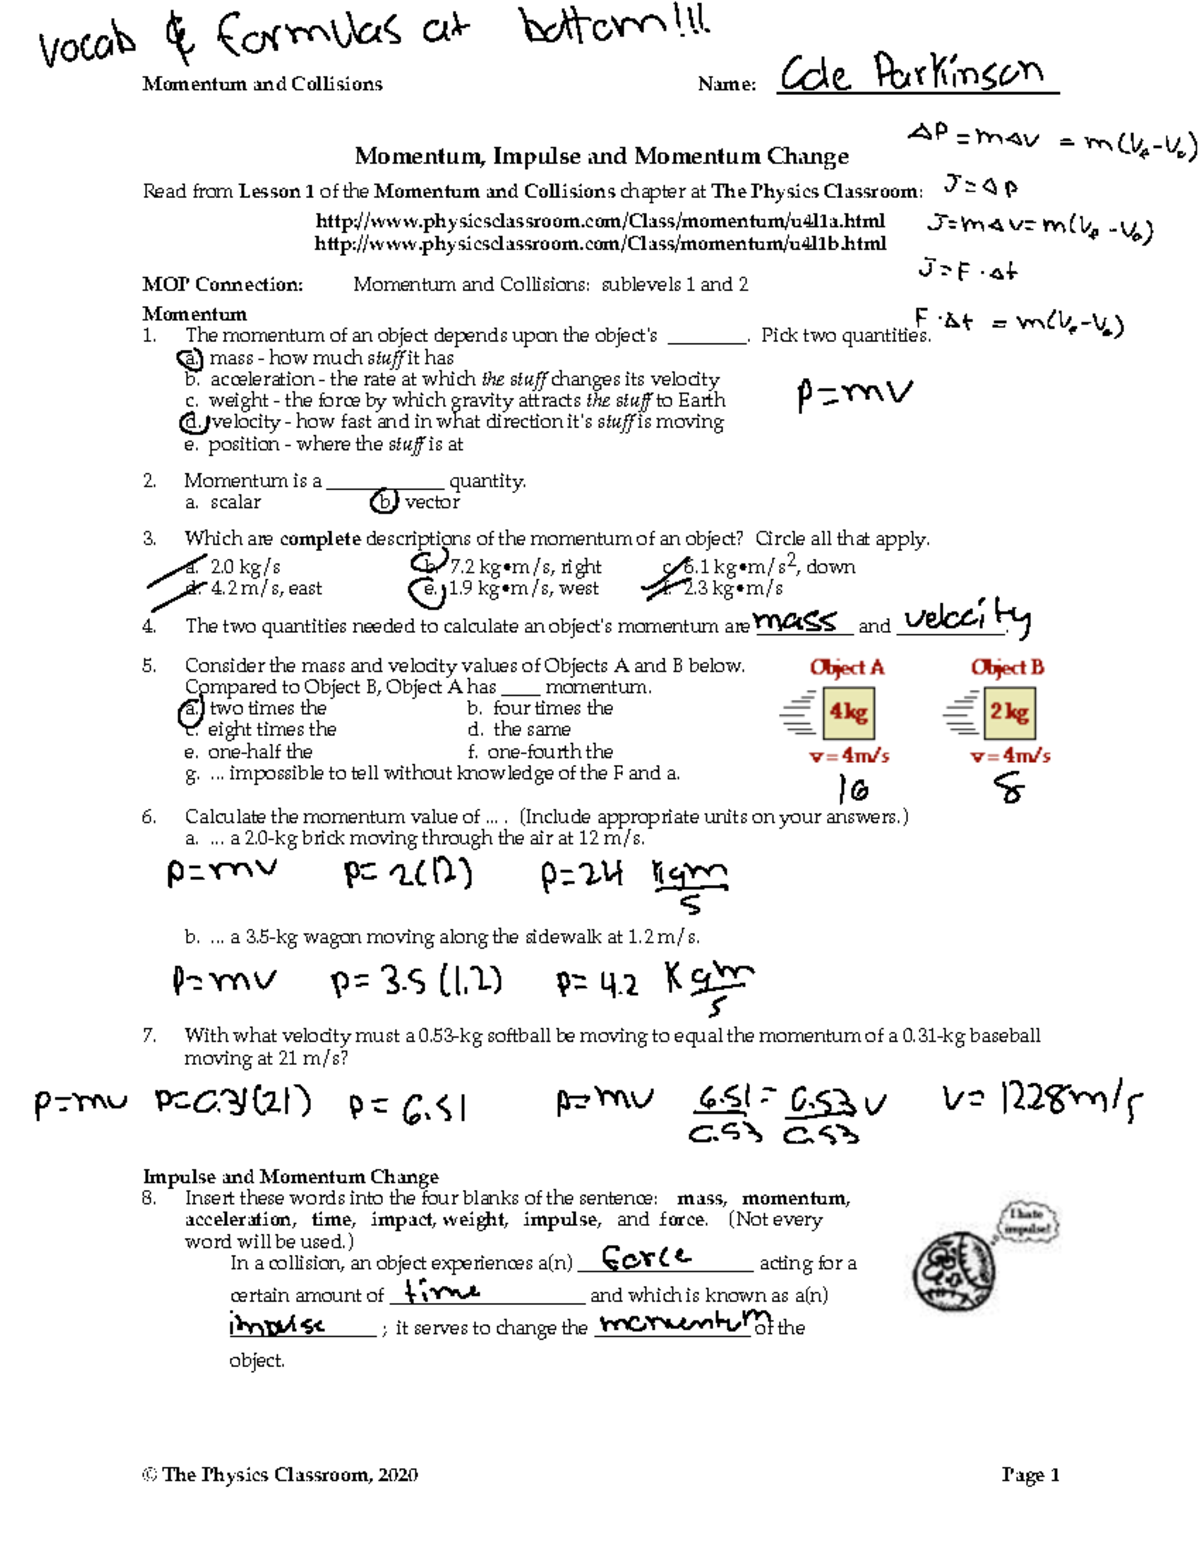 vocab & formulas at bottom!!!
Momentum and Collisions Name: Cole Parkinson
ΔP = mΔv = m(Vf-Vo)
Momentum, Impulse and Momentum Change
Read from Lesson 1 of the Momentum and Collisions chapter at The Physics Classroom:
J = Δp
http://www.physicsclassroom.com/Class/momentum/u4l1a.html
J=mΔv=m(Vf-Vo)
http://www.physicsclassroom.com/Class/momentum/u4l1b.html
J=F·Δt
MOP Connection: Momentum and Collisions: sublevels 1 and 2
Momentum
F·Δt = m(Vf-Vo)
1. The momentum of an object depends upon the object's ________. Pick two quantities.
a. mass - how much stuff it has
b. acceleration - the rate at which the stuff changes its velocity
p=mv
c. weight - the force by which gravity attracts the stuff to Earth
d. velocity - how fast and in what direction it's stuff is moving
e. position - where the stuff is at
2. Momentum is a ____________ quantity.
a. scalar b. vector
3. Which are complete descriptions of the momentum of an object? Circle all that apply.
a. 2.0 kg/s b. 7.2 kg•m/s, right c. 6.1 kg•m/s2, down
d. 4.2 m/s, east e. 1.9 kg•m/s, west f. 2.3 kg•m/s
4. The two quantities needed to calculate an object's momentum are mass and velocity.
5. Consider the mass and velocity values of Objects A and B below.
Compared to Object B, Object A has ____ momentum.
a. two times the b. four times the
c. eight times the d. the same
e. one-half the f. one-fourth the
g. ... impossible to tell without knowledge of the F and a.
Object A Object B
4 kg 2 kg
v = 4m/s v = 4m/s
16 8
6. Calculate the momentum value of ... . (Include appropriate units on your answers.)
a. ... a 2.0-kg brick moving through the air at 12 m/s.
p=mv p=2(12) p=24 kgm/s
b. ... a 3.5-kg wagon moving along the sidewalk at 1.2 m/s.
p=mv p=3.5(1.2) p=4.2 Kgm/s
7. With what velocity must a 0.53-kg softball be moving to equal the momentum of a 0.31-kg baseball
moving at 21 m/s?
p=mv p=0.31(21) p=6.51 p=mv 6.51 = 0.53v v=1228m/s
0.53 0.53
Impulse and Momentum Change
8. Insert these words into the four blanks of the sentence: mass, momentum,
acceleration, time, impact, weight, impulse, and force. (Not every
word will be used.)
I hate
impulse!
In a collision, an object experiences a(n) force acting for a
certain amount of time and which is known as a(n)
impulse ; it serves to change the momentum of the
object.
© The Physics Classroom, 2020 Page 1